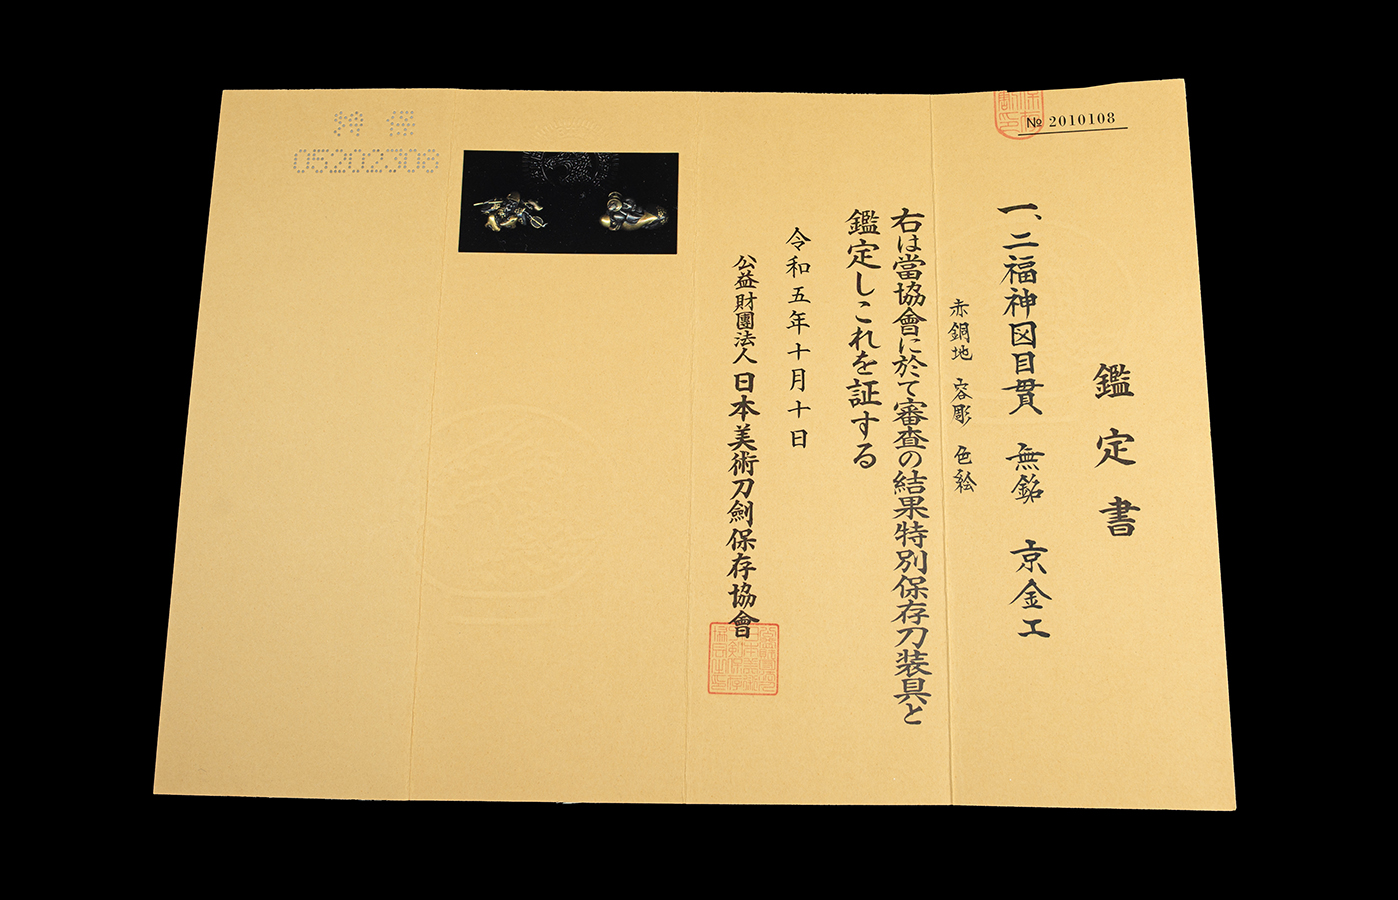 № 2010108
鑑定書
一、二福神図目貫　無銘　京金工
赤銅地　容彫　色絵
右は當協會に於て審査の結果特別保存刀装具と
鑑定しこれを証する
令和五年十月十日
公益財團法人 日本美術刀劍保存協會
特保
05202306